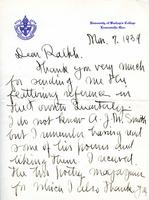 University of Washington
Mar. 7. 1939
Dear Ralph.
Thank you very much
for sending me the
flattering reference in
I do not know A. J. M. Smith
but I remember having read
some of his poems and
liking them. I received
the two Poetry magazines
for which I also thank you